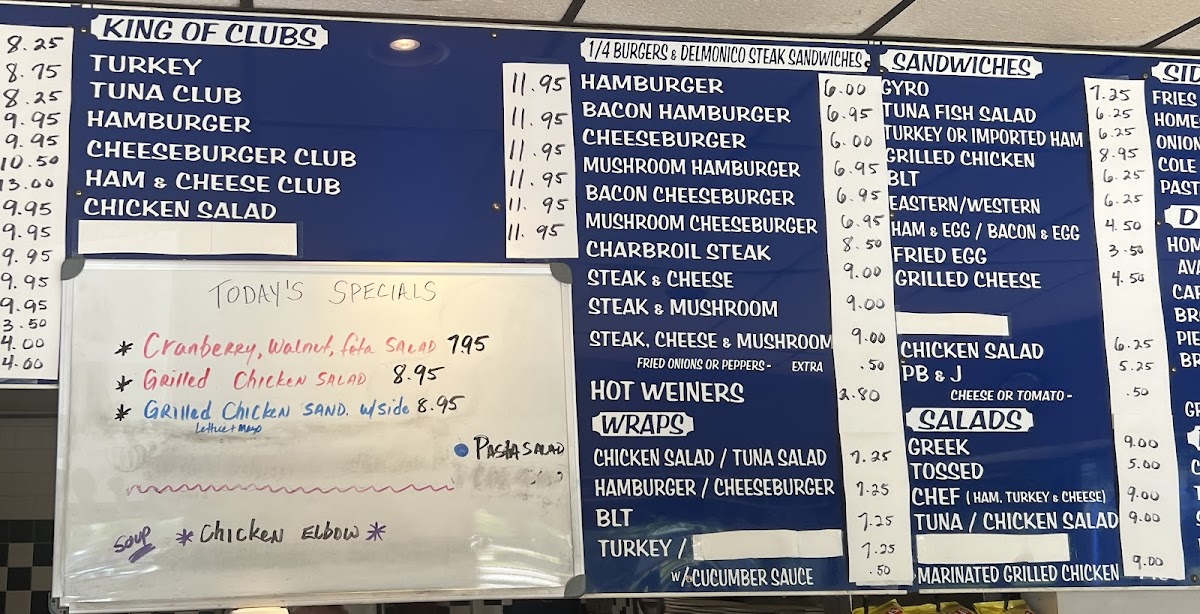 8.25
8.75
8.25
9.95
9.95
10.50
13.00
9.95
9.95
9.95
9.95
9.95
3.50
4.00
4.00
KING OF CLUBS
TURKEY 11.95
TUNA CLUB
HAMBURGER 11.95
CHEESEBURGER CLUB 11.95
HAM & CHEESE CLUB 11.95
CHICKEN SALAD 11.95
11.95
TODAY'S SPECIALS
* Cranberry, Walnut, feta SALAD 7.95
* Grilled Chicken SALAD 8.95
* Grilled Chicken SAND. w/side 8.95
Lettuce + Mayo
PASTA SALAD
SOUP * Chicken ELBOW *
1/4 BURGERS & DELMONICO STEAK SANDWICHES
HAMBURGER 6.00
BACON HAMBURGER 6.95
CHEESEBURGER 6.00
MUSHROOM HAMBURGER 6.95
BACON CHEESEBURGER 6.95
MUSHROOM CHEESEBURGER 6.95
CHARBROIL STEAK 8.50
STEAK & CHEESE 9.00
STEAK & MUSHROOM 9.00
STEAK, CHEESE & MUSHROOM 9.00
FRIED ONIONS OR PEPPERS - EXTRA .50
HOT WEINERS 2.80
WRAPS
CHICKEN SALAD / TUNA SALAD 7.25
HAMBURGER / CHEESEBURGER 7.25
BLT 7.25
TURKEY / 7.25
W/ CUCUMBER SAUCE .50
SANDWICHES
GYRO 7.25
TUNA FISH SALAD 6.25
TURKEY OR IMPORTED HAM 6.25
GRILLED CHICKEN 8.95
BLT 6.25
EASTERN/WESTERN 6.25
HAM & EGG / BACON & EGG 4.50
FRIED EGG 3.50
GRILLED CHEESE 4.50
CHICKEN SALAD 6.25
PB & J 5.25
CHEESE OR TOMATO - .50
SALADS
GREEK 9.00
TOSSED 5.00
CHEF (HAM, TURKEY & CHEESE) 9.00
TUNA / CHICKEN SALAD 9.00
MARINATED GRILLED CHICKEN 9.00
SID
FRIES
HOME
ONION
COLE
PAST
D
HOM
AVA
CAR
BRO
PIE
BR